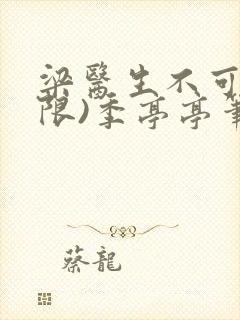 梁醫生不可
限)季亭亭
蔡龍